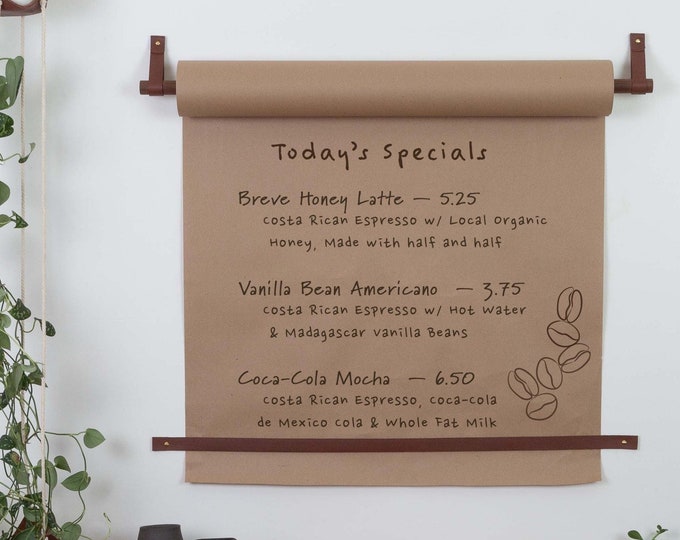 Today's Specials
Breve Honey Latte — 5.25
Costa Rican Espresso w/ Local Organic
Honey, Made with half and half
Vanilla Bean Americano — 3.75
Costa Rican Espresso w/ Hot Water
& Madagascar Vanilla Beans
Coca-Cola Mocha — 6.50
Costa Rican Espresso, coca-cola
de Mexico cola & Whole Fat Milk